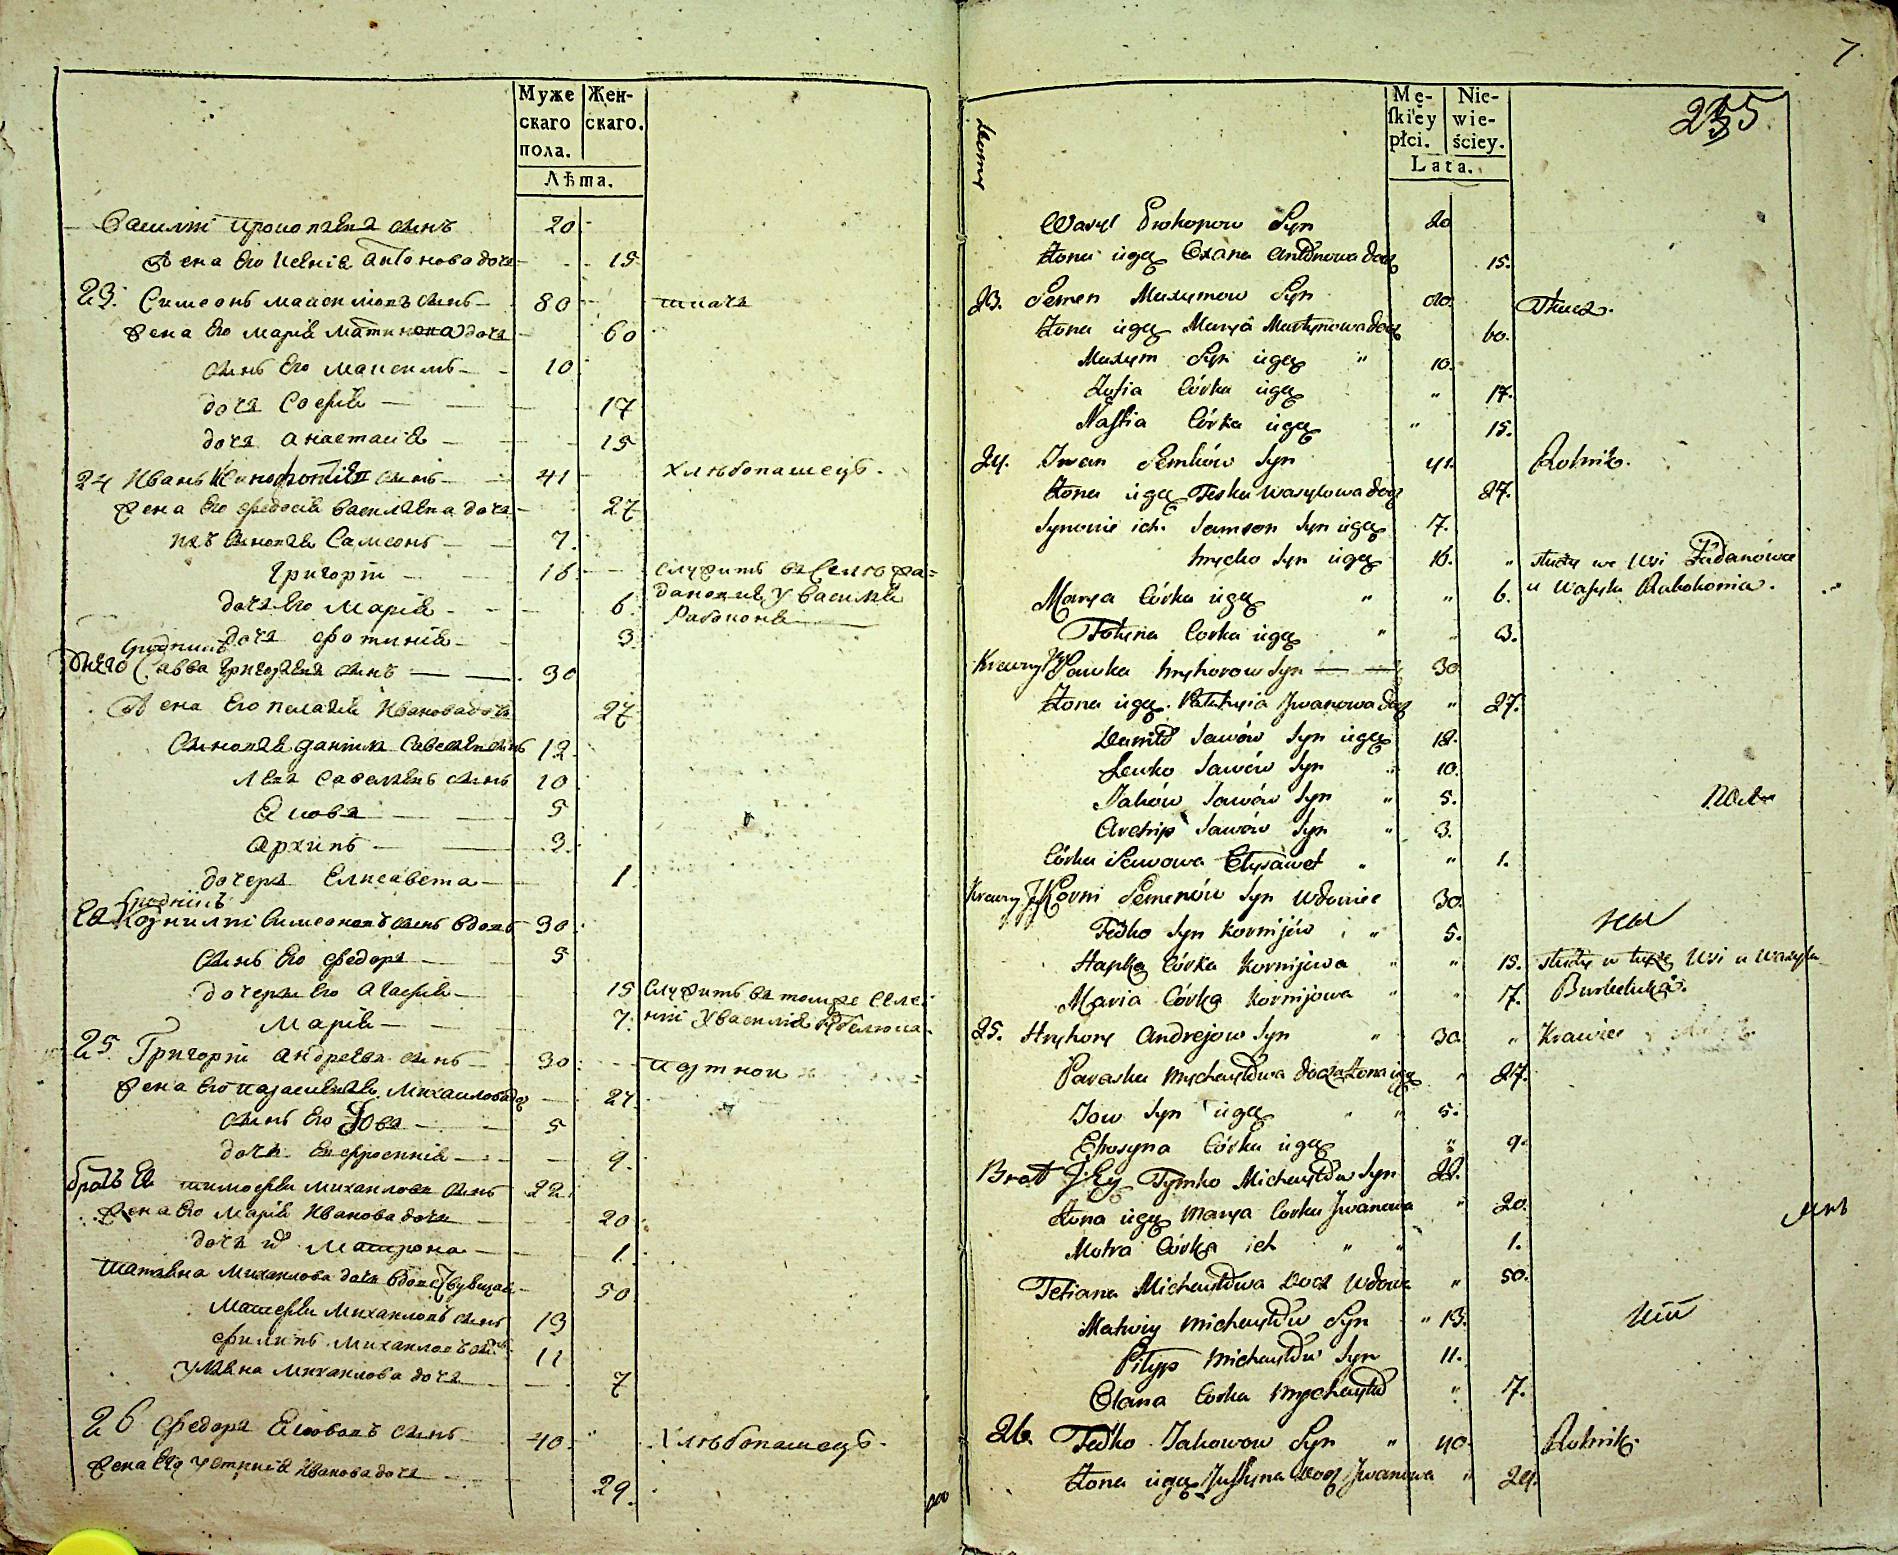 Муже Жен-
скаго скаго.
пола.
Лѣта.
Василий Прокопіевъ синъ 20
Жена его Ксенія Антонова дочь 15
23. Симеонъ Максимовъ синъ 80 ткачъ
Жена его Марія Мартинова дочь 60
синъ его Максимъ 10
дочь Софія 17
дочь Анастасія 15
24 Иванъ синъ 41 Хлѣбопашецъ.
Жена его Феодосія Василіева дочь 27
ихъ синовя Самсонъ 7.
Григорій 16 служитъ въ Селѣ Жа=
дановкѣ у Василія
дочь его Марія 6.
дочь Фотинія 3.
сродникъ
Савва Григоріевъ синъ 30
Жена его Пелагія Иванова дочь 27
Синовя Даніилъ синъ 12.
Левъ синъ 10
Яковъ 5
Архипъ 3.
дочерь Елисавета 1
сродникъ
Ея Корнилий Симеоновъ синъ вдовъ 30.
Синъ его Федоръ 5
дочери его Агафія 15 служитъ въ томже Селе
Марія 7. нии у Василія
25. Григорий Андреевъ синъ 30
Жена его Михаилова до 27.
синъ его Іовъ 5
дочь Евфросинія 9.
братъ Ея Тимофей Михаиловъ синъ 22.
Жена его Марія Иванова дочь 20
дочь их Матрона 1.
Татіяна Михаилова дочь вдов 50
Матфей Михаиловъ синъ 13
Филипъ Михаиловъ 11
Уляна Михаилова дочь 7
26 Федоръ Яковлевъ синъ 40. Хлѣбопашецъ.
Жена Его Устинія Иванова дочь 29.
7
235
Domy
Mę- Nie-
skiey wie-
płci. ściey.
Lata.
Wasyl Prokopow Syn 20
Żona iego Oxana Antonowa docz 15.
23. Semen Maxymow Syn 80. Tkacz.
Żona iego Marya Martynowa docz 60.
Maxym Syn iego " 10.
Zofia Córka iego " 17.
Nastia Córka iego " 15.
24. Iwan Semków Syn 41. Rolnik.
Żona iego Feśka Wasylowa docz 27.
Synowie ich. Samson Syn iego 7.
Hryćko Syn iego 16. " służy we Wsi Żadanówce
Marya Córka iego " " 6. u Wasyla Rabokonia.
Fotyna Corka iego " " 3.
Krewny Jey Sawka Hryhorow Syn 30
Żona iego Pałahyia Jwanowa docz " 27.
Daniło Sawów Syn iego 12.
Lewko Sawów Syn " 10.
Jaków Sawów Syn " 5.
Archip Sawów Syn " 3.
Córka Sawowa Elysawet " " 1.
Krewny Jey Korni Semenów Syn Wdowiec 30.
Fedko Syn Kornijów " 5.
Hapka Córka Kornijowa " " 15. służy w teyże Wsi u Wasyla
Maria Córka Kornijowa " " 7.
25. Hryhory Andrejow Syn " 30. " Krawiec
Paraska Mychayłowa docz Żona iego " 27.
Jow Syn iego " " 5.
Efrosyna Córka iego " 9.
Brat Jey Tymko Michayłów Syn 22.
Żona iego Marya Corka Jwanowa " 20.
Motra Córka ich " " 1.
Tetiana Michayłowa docz Wdowa " 50.
Matwiy Michayłów Syn " 13.
Pilyp Michayłów Syn 11.
Olana Corka Mychayłów " 7.
26. Fedko Jakowow Syn " 40. Rolnik.
Żona iego Justyna docz Jwanowa " 29.